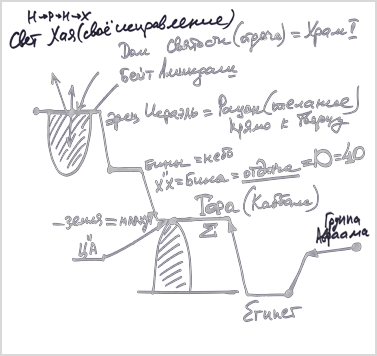 Н→Р→Н→Х
Свет Хая (своё исправление)
Дом Святости (строче) = Храм I
Бейт Амикдаш
Эрец Исраэль = Рацон (желание)
прямо к Творцу
Бины = небо
Бина = отдача = 10 = 40
Тора (Каббала)
земля = малхут
Σ
Группа
Авраама
Египет